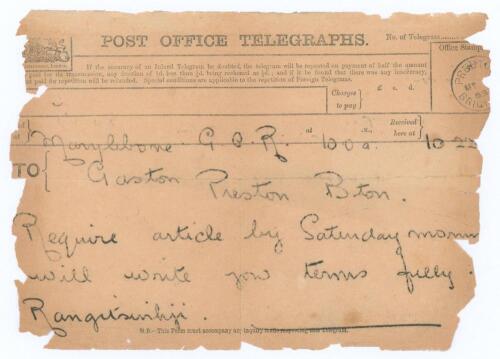 POST OFFICE TELEGRAPHS.
No. of Telegram
If the accuracy of an Inland Telegram be doubted, the telegram will be repeated on payment of half the amount
paid for its transmission, any fraction of 1d. less than ½d. being reckoned as ½d.; and if it be found that there was any inaccuracy,
paid for repetition will be refunded. Special conditions are applicable to the repetition of Foreign Telegrams.
Office Stamp.
Charges to pay
£ s. d.
Marylebone G C R. at 10 0 a .M., Received here at 10 22
TO
Gaston Preston Bton.
Require article by Saturday morn
will write you terms fully.
Rangitsinhji.
N.B.—This Form must accompany any inquiry made respecting this Telegram.